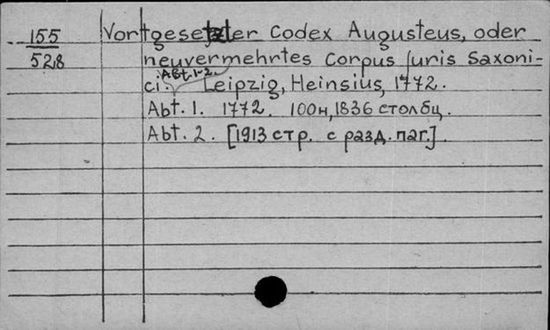 155 Vortgesetzter Codex Augusteus, oder
528 neuvermehrtes Corpus Juris Saxoni-
Abt. 1-2.
ci. Leipzig, Heinsius, 1772.
Abt. 1. 1772. 100н, 1836 столбц.
Abt. 2. [1913 стр. с разд. паг.].